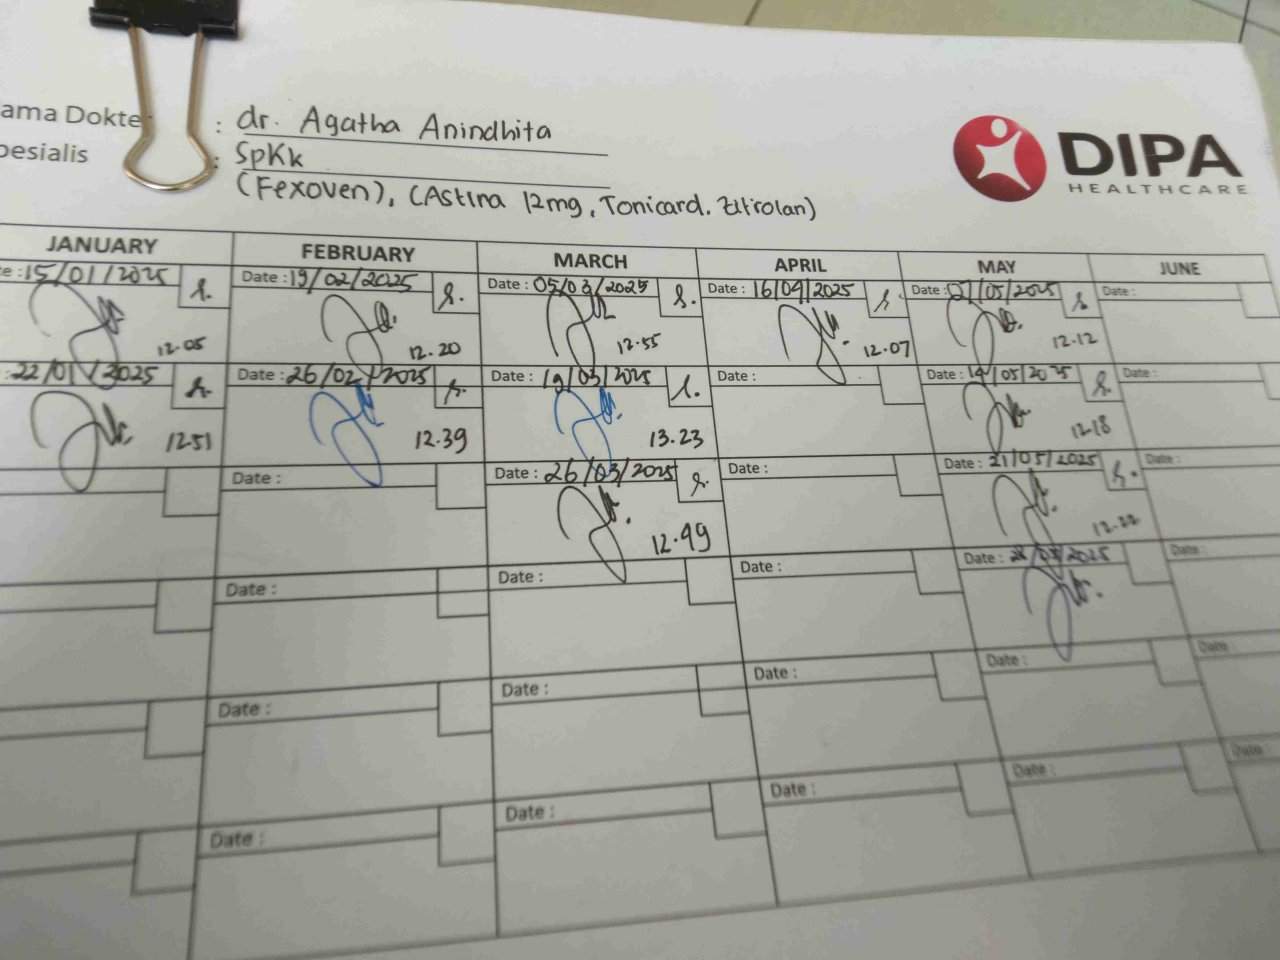 ama Dokte : dr. Agatha Anindhita
pesialis : SpKk
(Fexoven), (Astina 12mg, Tonicard. Zitrolan)
DIPA
HEALTHCARE
JANUARY FEBRUARY MARCH APRIL MAY JUNE
te : 15/01/2025 Date : 19/02/2025 Date : 05/03/2025 Date : 16/04/2025 Date : 07/05/2025 Date :
12.05 12.20 12.55 12.07 12.12
: 22/01/2025 Date : 26/02/2025 Date : 19/03/2025 Date : Date : 14/05/2025 Date :
12.51 12.39 13.23 12.18
Date : Date : 26/03/2025 Date : Date : 21/05/2025 Date :
12.49 12.22
Date : Date : Date : Date : 28/05/2025 Date :
Date : Date : Date : Date : Date :
Date : Date : Date : Date : Date :